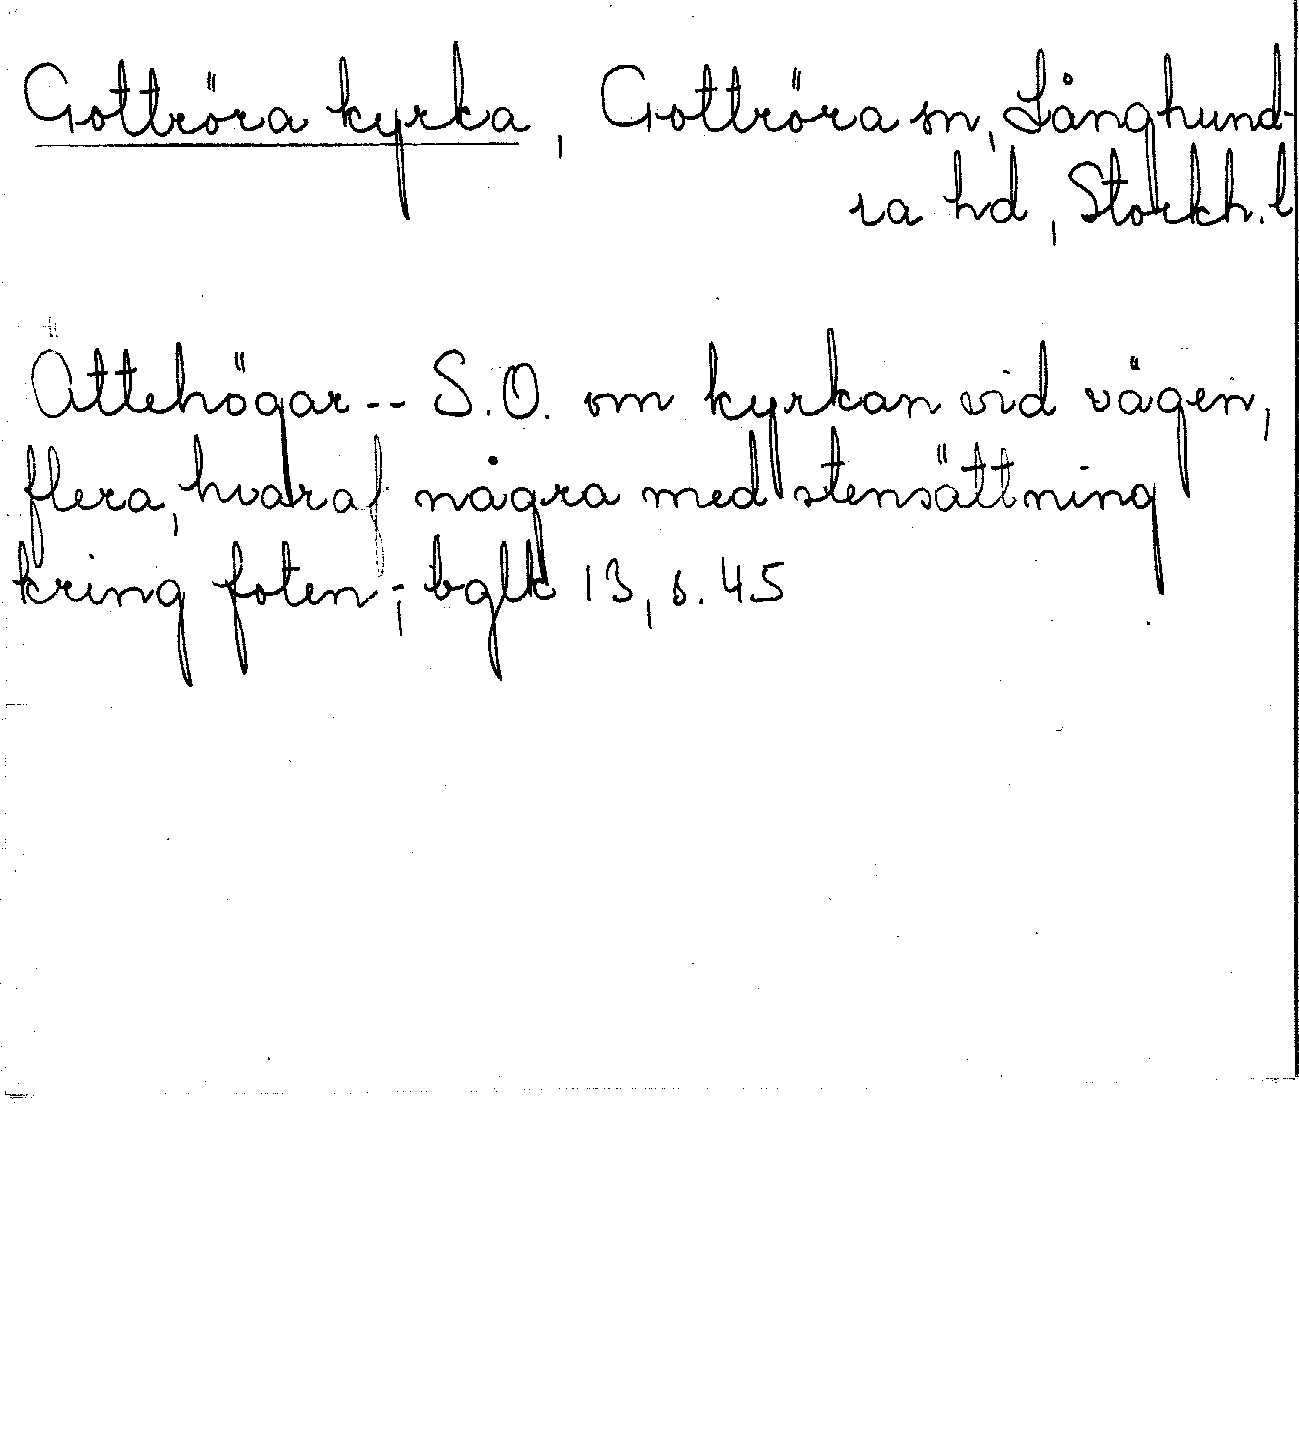 Gottröra kyrka, Gottröra sn, Långhund-
ra hd, Stockh. l
Ättehögar -- S.O. om kyrkan vid vägen,
flera, hvaraf några med stensättning
kring foten -; bglk 13, s. 45